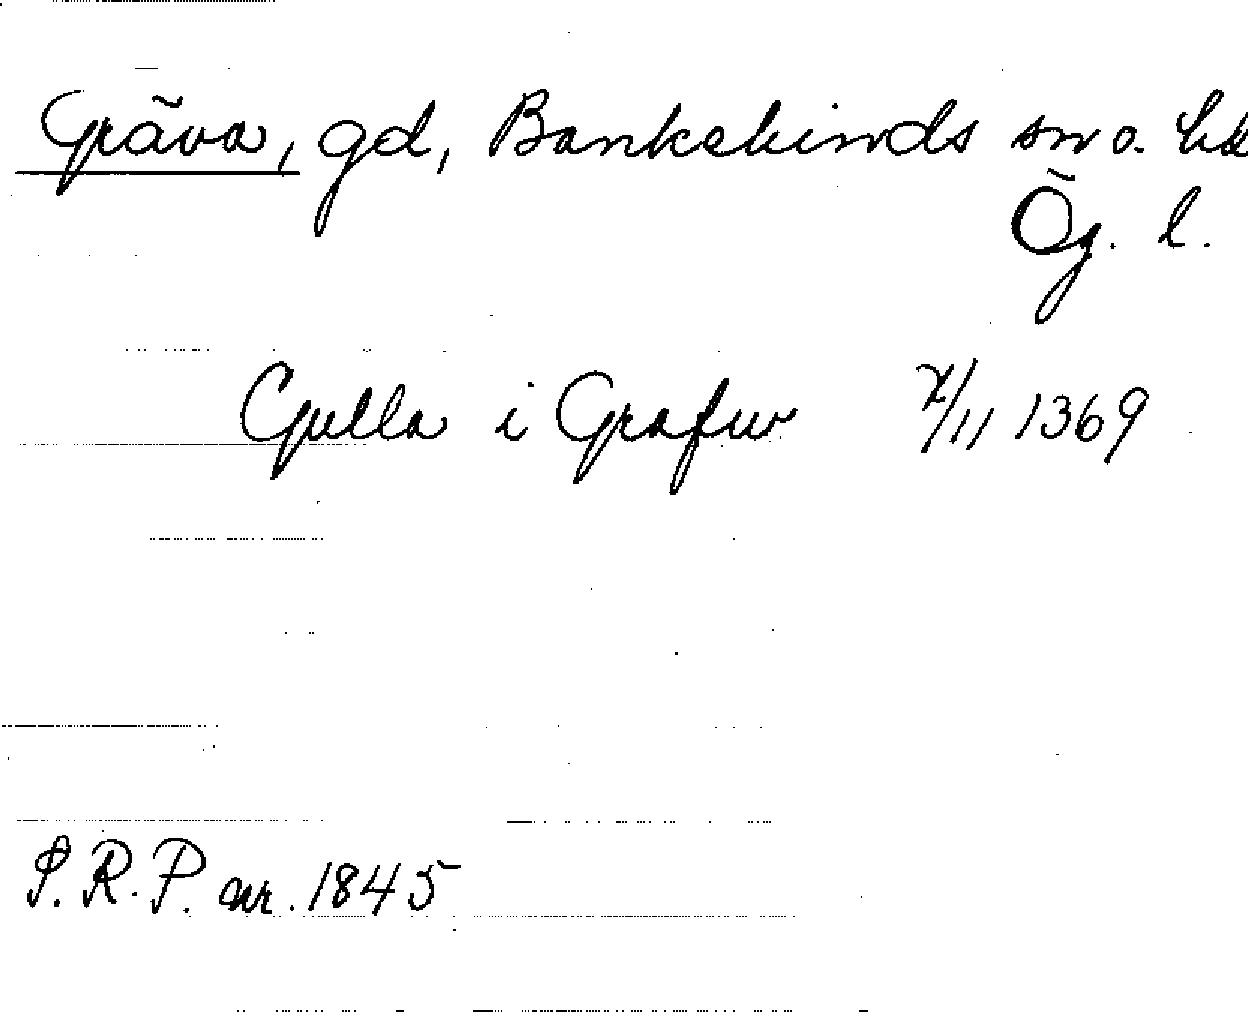 Gräva, gd, Bankekinds sn o. hd
Ög. l.
Gulla i Grafw /11 1369
S.R.P. nr. 1845